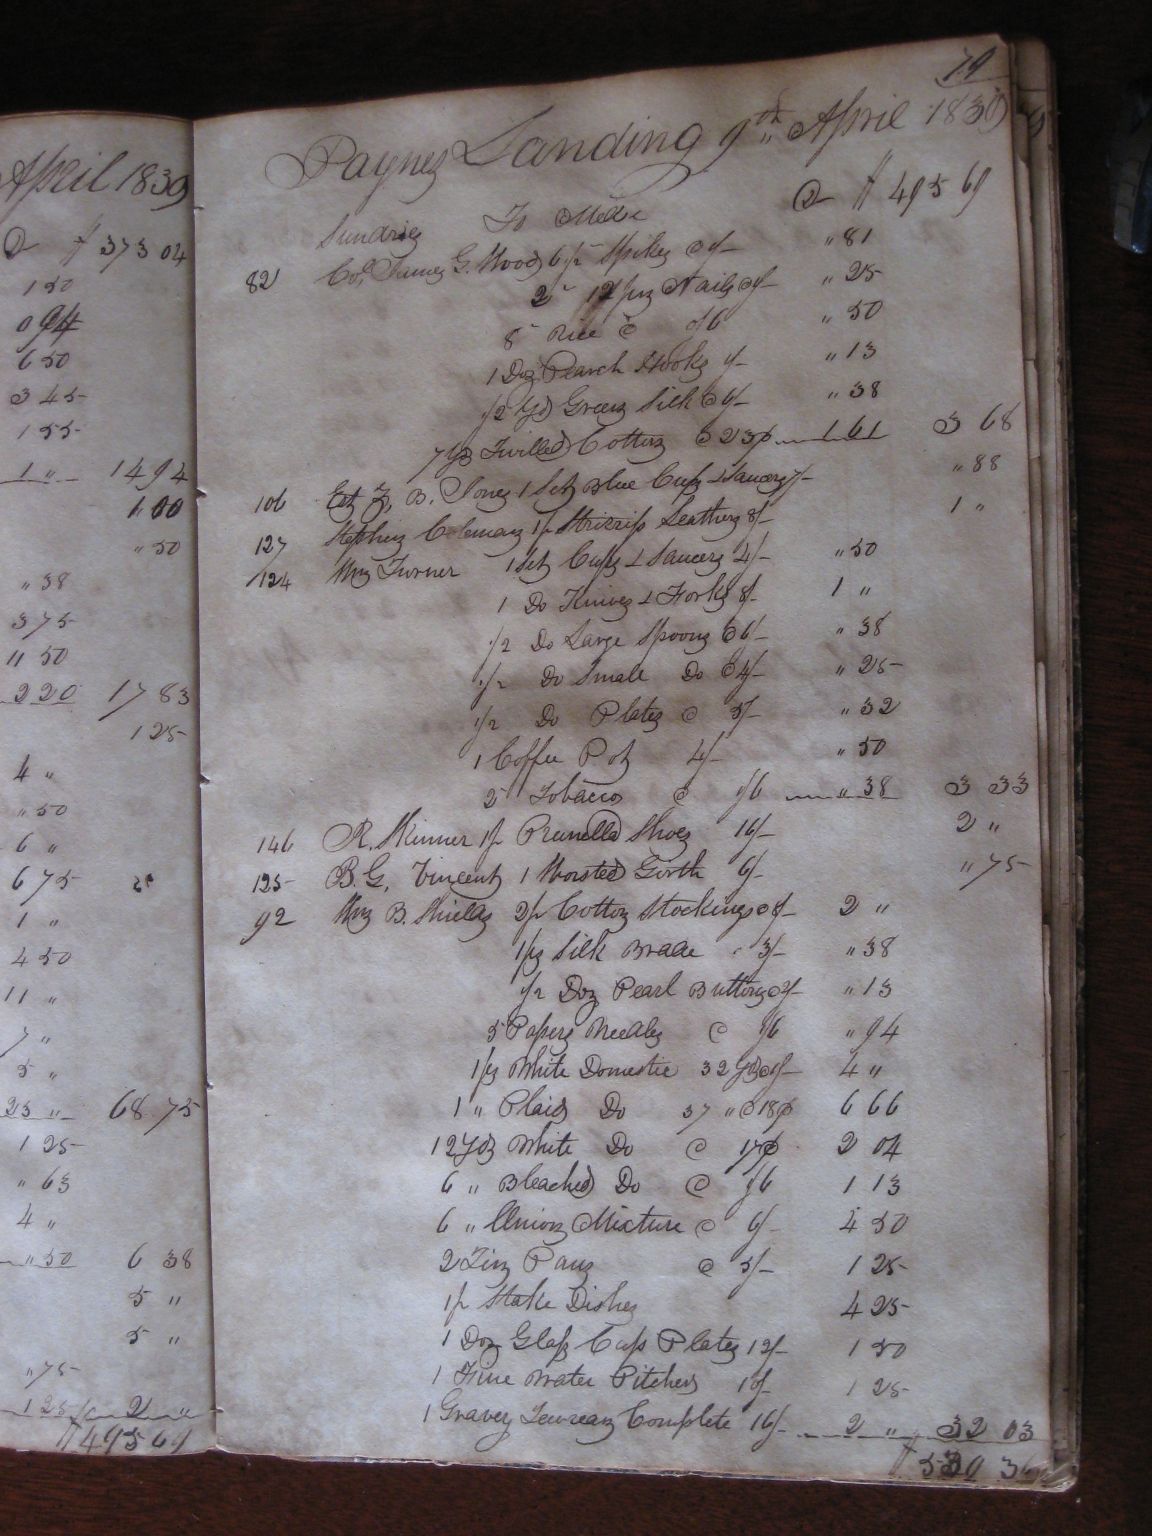 April 1839
$ 373 04
1 50
0 94
6 50
3 45
1 55
1 " 14 94
1 00
" 50
" 38
3 75
11 50
2 20 17 83
1 25
4 "
" 50
6 "
6 75
1 "
4 50
11 "
7 "
5 "
23 " 68 75
1 25
" 63
4 "
" 50 6 38
5 "
5 "
" 75
1 25 2 "
$ 495 69
79
Paynes Landing 9th April 1839
Sundries To Mdse $ 495 69
82 Col, James G. Wood 6 Spikes @ 1/- " 81
2 12 Nails @ 1/- " 25
8 Rice @ /6 " 50
1 Doz Pearch Hooks 1/- " 13
1/2 Yd Green Silk @ 6/- " 38
7 Yds Twilled Cotton @ 23¢ 1 61 3 68
106 Est B. Jones 1 Set Blue Cups & Saucers 7/- " 88
127 Stephen Coleman 1 pr Stirrip Leathers 8/- 1 "
124 Wm Turner 1 Set Cups & Saucers 4/- " 50
1 Do Knives & Forks 8/- 1 "
1/2 Do Large Spoons @ 6/- " 38
1/2 Do Small Do @ 4/- " 25
1/2 Do Plates @ 5/- " 32
1 Coffee Pot 4/- " 50
2 Tobacco @ 1/6 " 38 3 33
146 R. Skinner 1 pr Prunella Shoes 16/- 2 "
125 B. G. Vincent 1 Worsted Girth 6/- " 75
92 Wm B. Shields 2 pr Cotton Stockings @ 8/- 2 "
1 ps Silk Braid 3/- " 38
1/2 Doz Pearl Buttons @ 2/- " 13
5 Papers Needles @ 1/6 " 94
1 ps White Domestic 32 Yds @ 1/- 4 "
1 " Plaid Do 37 " @ 18¢ 6 66
12 Yds White Do @ 17¢ 2 04
6 " Bleached Do @ 1/6 1 13
6 " Union Mixture @ 6/- 4 50
2 Tin Pans @ 5/- 1 25
1 pr Stake Dishes 4 25
1 Doz Glass Cup Plates 12/- 1 50
1 Fine Water Pitcher 10/- 1 25
1 Gravey Tewrean Complete 16/- 2 " 32 03
$ 539 36